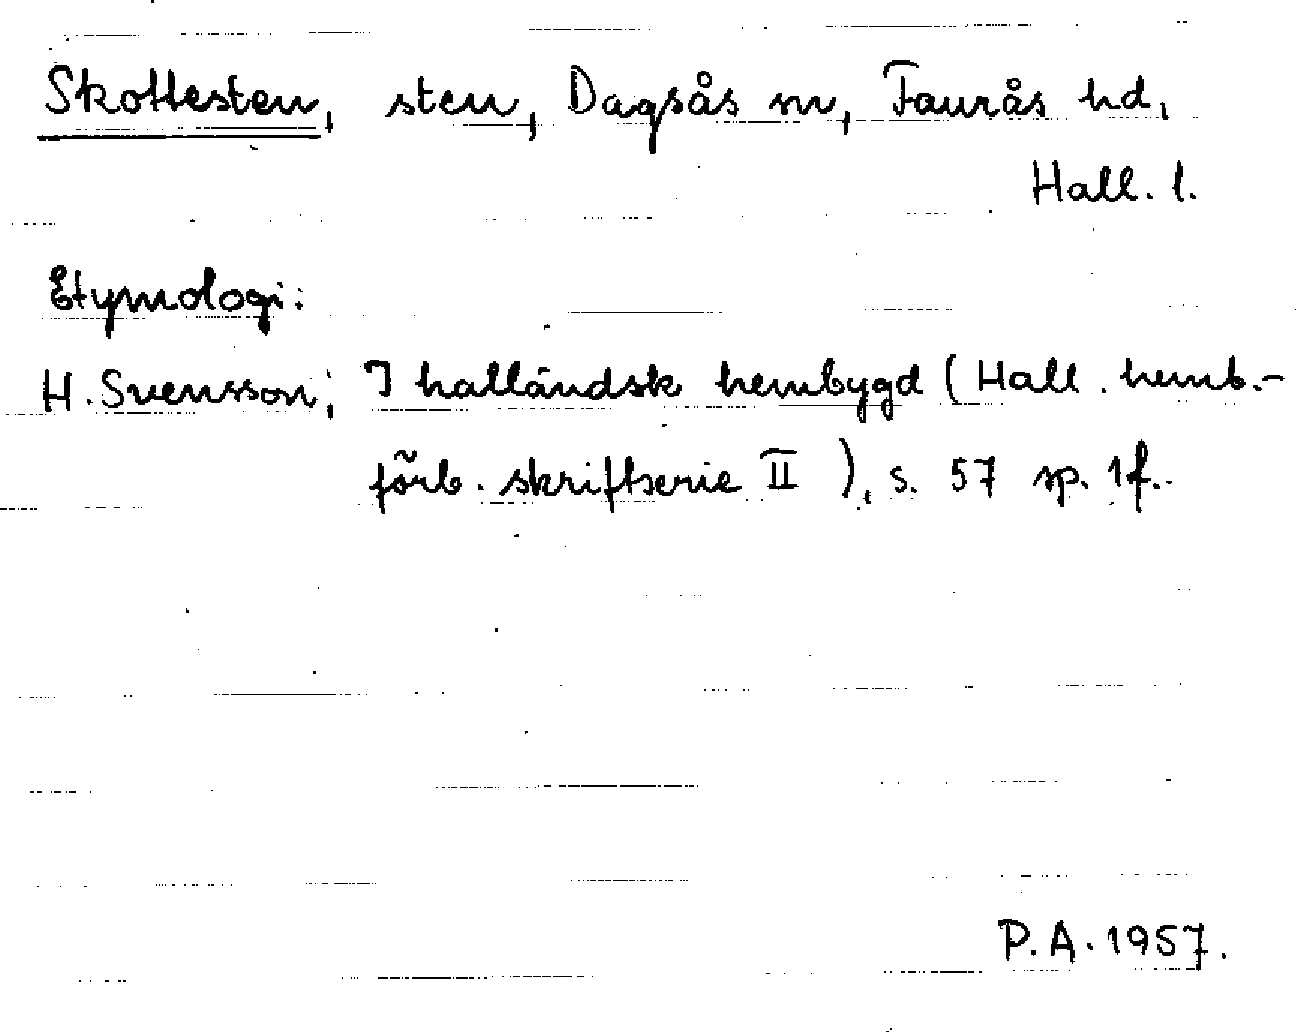 Skottesten, sten, Dagsås sn, Faurås hd,
Hall. l.
Etymologi:
H. Svensson; I halländsk hembygd (Hall. hemb.-
förb. skriftserie II ), s. 57 sp. 1f..
P.A. 1957.